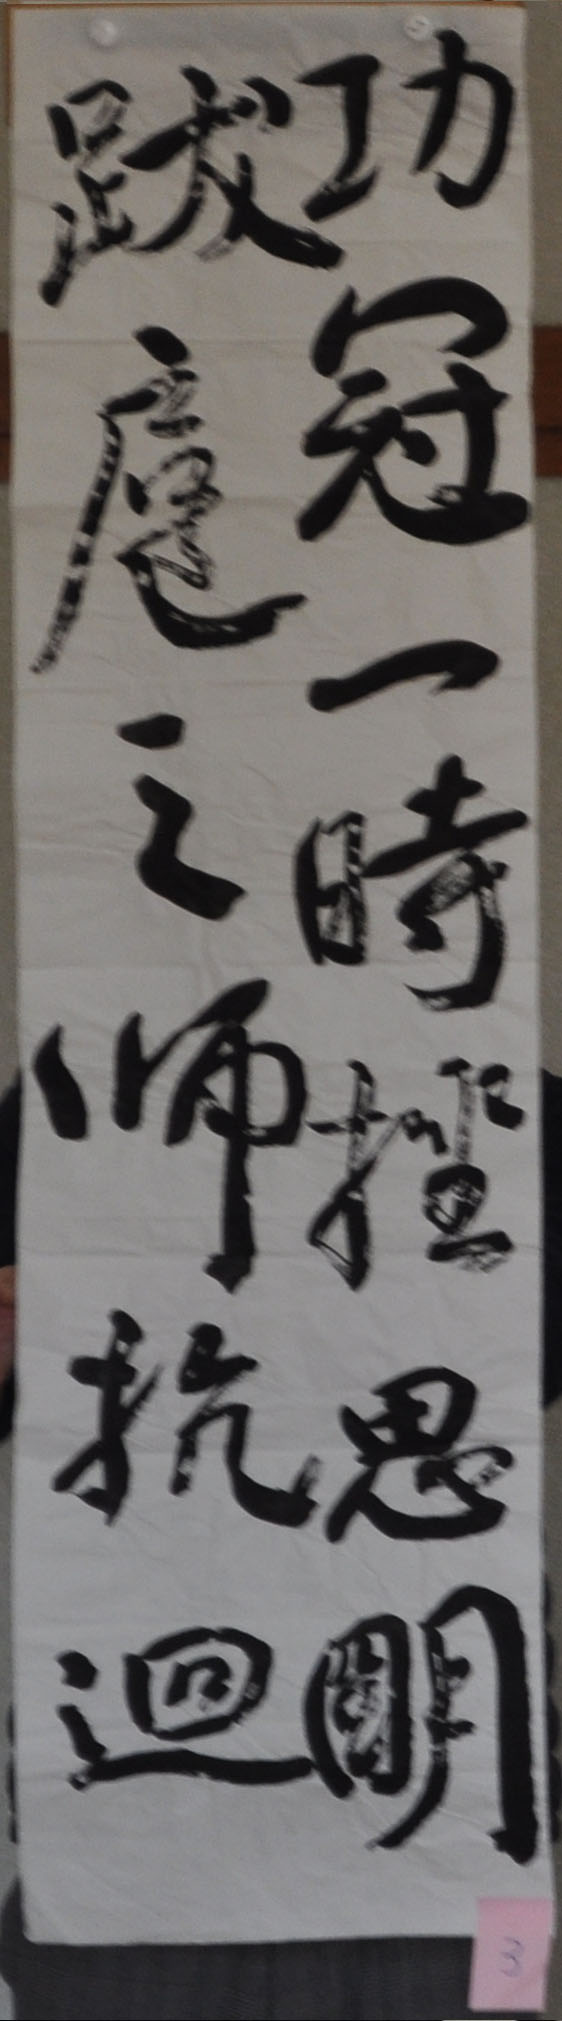 功冠一時挫思明
跋扈之師抗迴
3